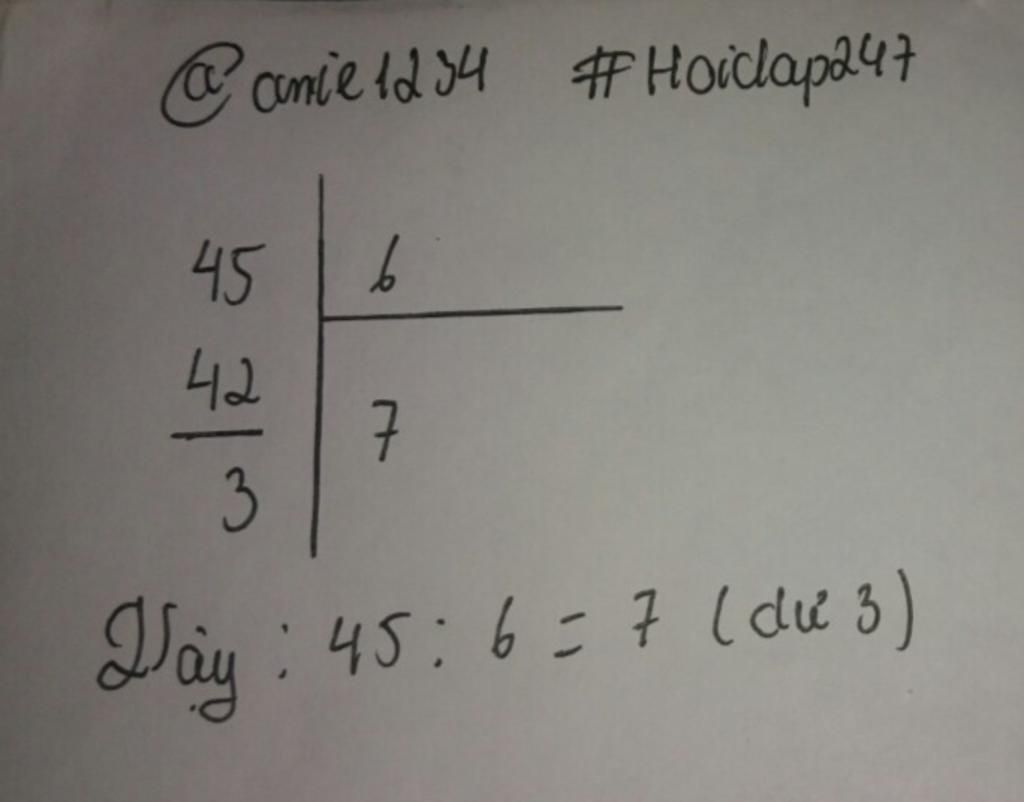 @amie1234 #Hoidap247
45 6
42 7
3
Vậy : 45 : 6 = 7 (dư 3)